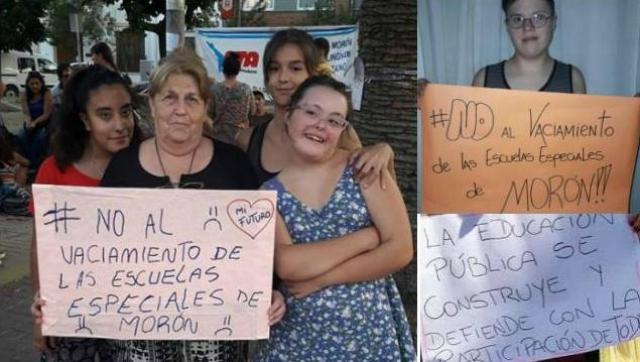 # NO AL
MI
FUTURO
VACIAMIENTO DE
LAS ESCUELAS
ESPECIALES DE
MORÓN
#NO AL VACIAMIENTO
de las Escuelas Especiales
de MORÓN!!!
LA EDUCACIÓN
PÚBLICA SE
CONSTRUYE Y
DEFIENDE CON LA
PARTICIPACIÓN DE TOD